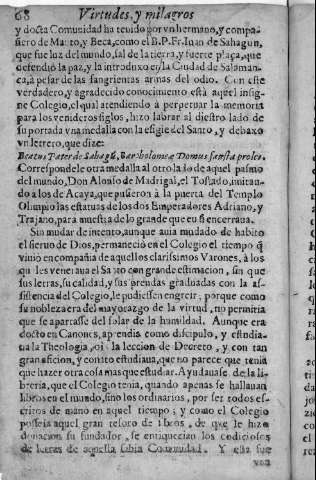 68 Virtudes, y milagros
y docta Comunidad ha tenido por vn hermano, y compa-
ñero de Manto, y Beca, como el B. P. Fr. Iuan de Sahagun,
que fue luz del mundo, sal de la tierra, y fuerte plaça, que
defendiò la paz, y la introduxo en la Ciudad de Salaman-
ca, à pesar de las sangrientas armas del odio. Con este
verdadero, y agradecido conocimiento està aquel insig-
ne Colegio, el qual atendiendo à perpetuar la memoria
para los venideros siglos, hizo labrar al diestro lado de
su portada vna medalla con la efigie del Santo, y debaxo
vn letrero, que dize:
Beatus Pater de Sahagũ, Bartholomeæ Domus sancta proles.
Correspondele otra medalla al otro lado de aquel pasmo
del mundo, Don Alonso de Madrigal, el Tostado, imitan-
do a los de Acaya, que pusieron à la puerta del Templo
Olimpo las estatuas de los dos Emperadores Adriano, y
Trajano, para muestra de lo grande que en si encerraua.
Sin mudar de intento, aunque auia mudado de habito
el sieruo de Dios, permaneciò en el Colegio el tiempo q̃
viuiò en compañia de aquellos clarissimos Varones, à los
quales veneraua el Santo con grande estimacion, sin que
sus letras, su calidad, y sus prendas graduadas con la as-
sistencia del Colegio, le pudiessen engreir, porque como
su nobleza era del mayorazgo de la virtud, no permitia
que se apartasse del solar de la humildad. Aunque era
docto en Canones, aprendia como discipulo, y estudia-
ua la Theologia, oìa la leccion de Decreto, y con tan
gran aficion, y conato estudiaua, que no parece que tenia
que hazer otra cosa mas que estudiar. Ayudauase de la li-
breria, que el Colegio tenia, quando apenas se hallauan
libros en el mundo, sino los ordinarios, por ser todos es-
critos de mano en aquel tiempo; y como el Colegio
posseia aquel gran tesoro de libros, de que le hizo
donacion su fundador, se enriquecian los codiciosos
de letras de aquella sabia Comunidad. Y esta fue
vna